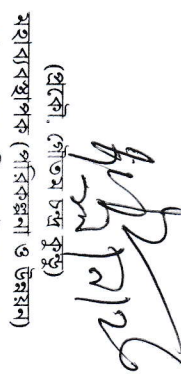 (প্রকৌ. গৌতম চন্দ্র কুন্ডু)
মহাব্যবস্থাপক (পরিকল্পনা ও উন্নয়ন)